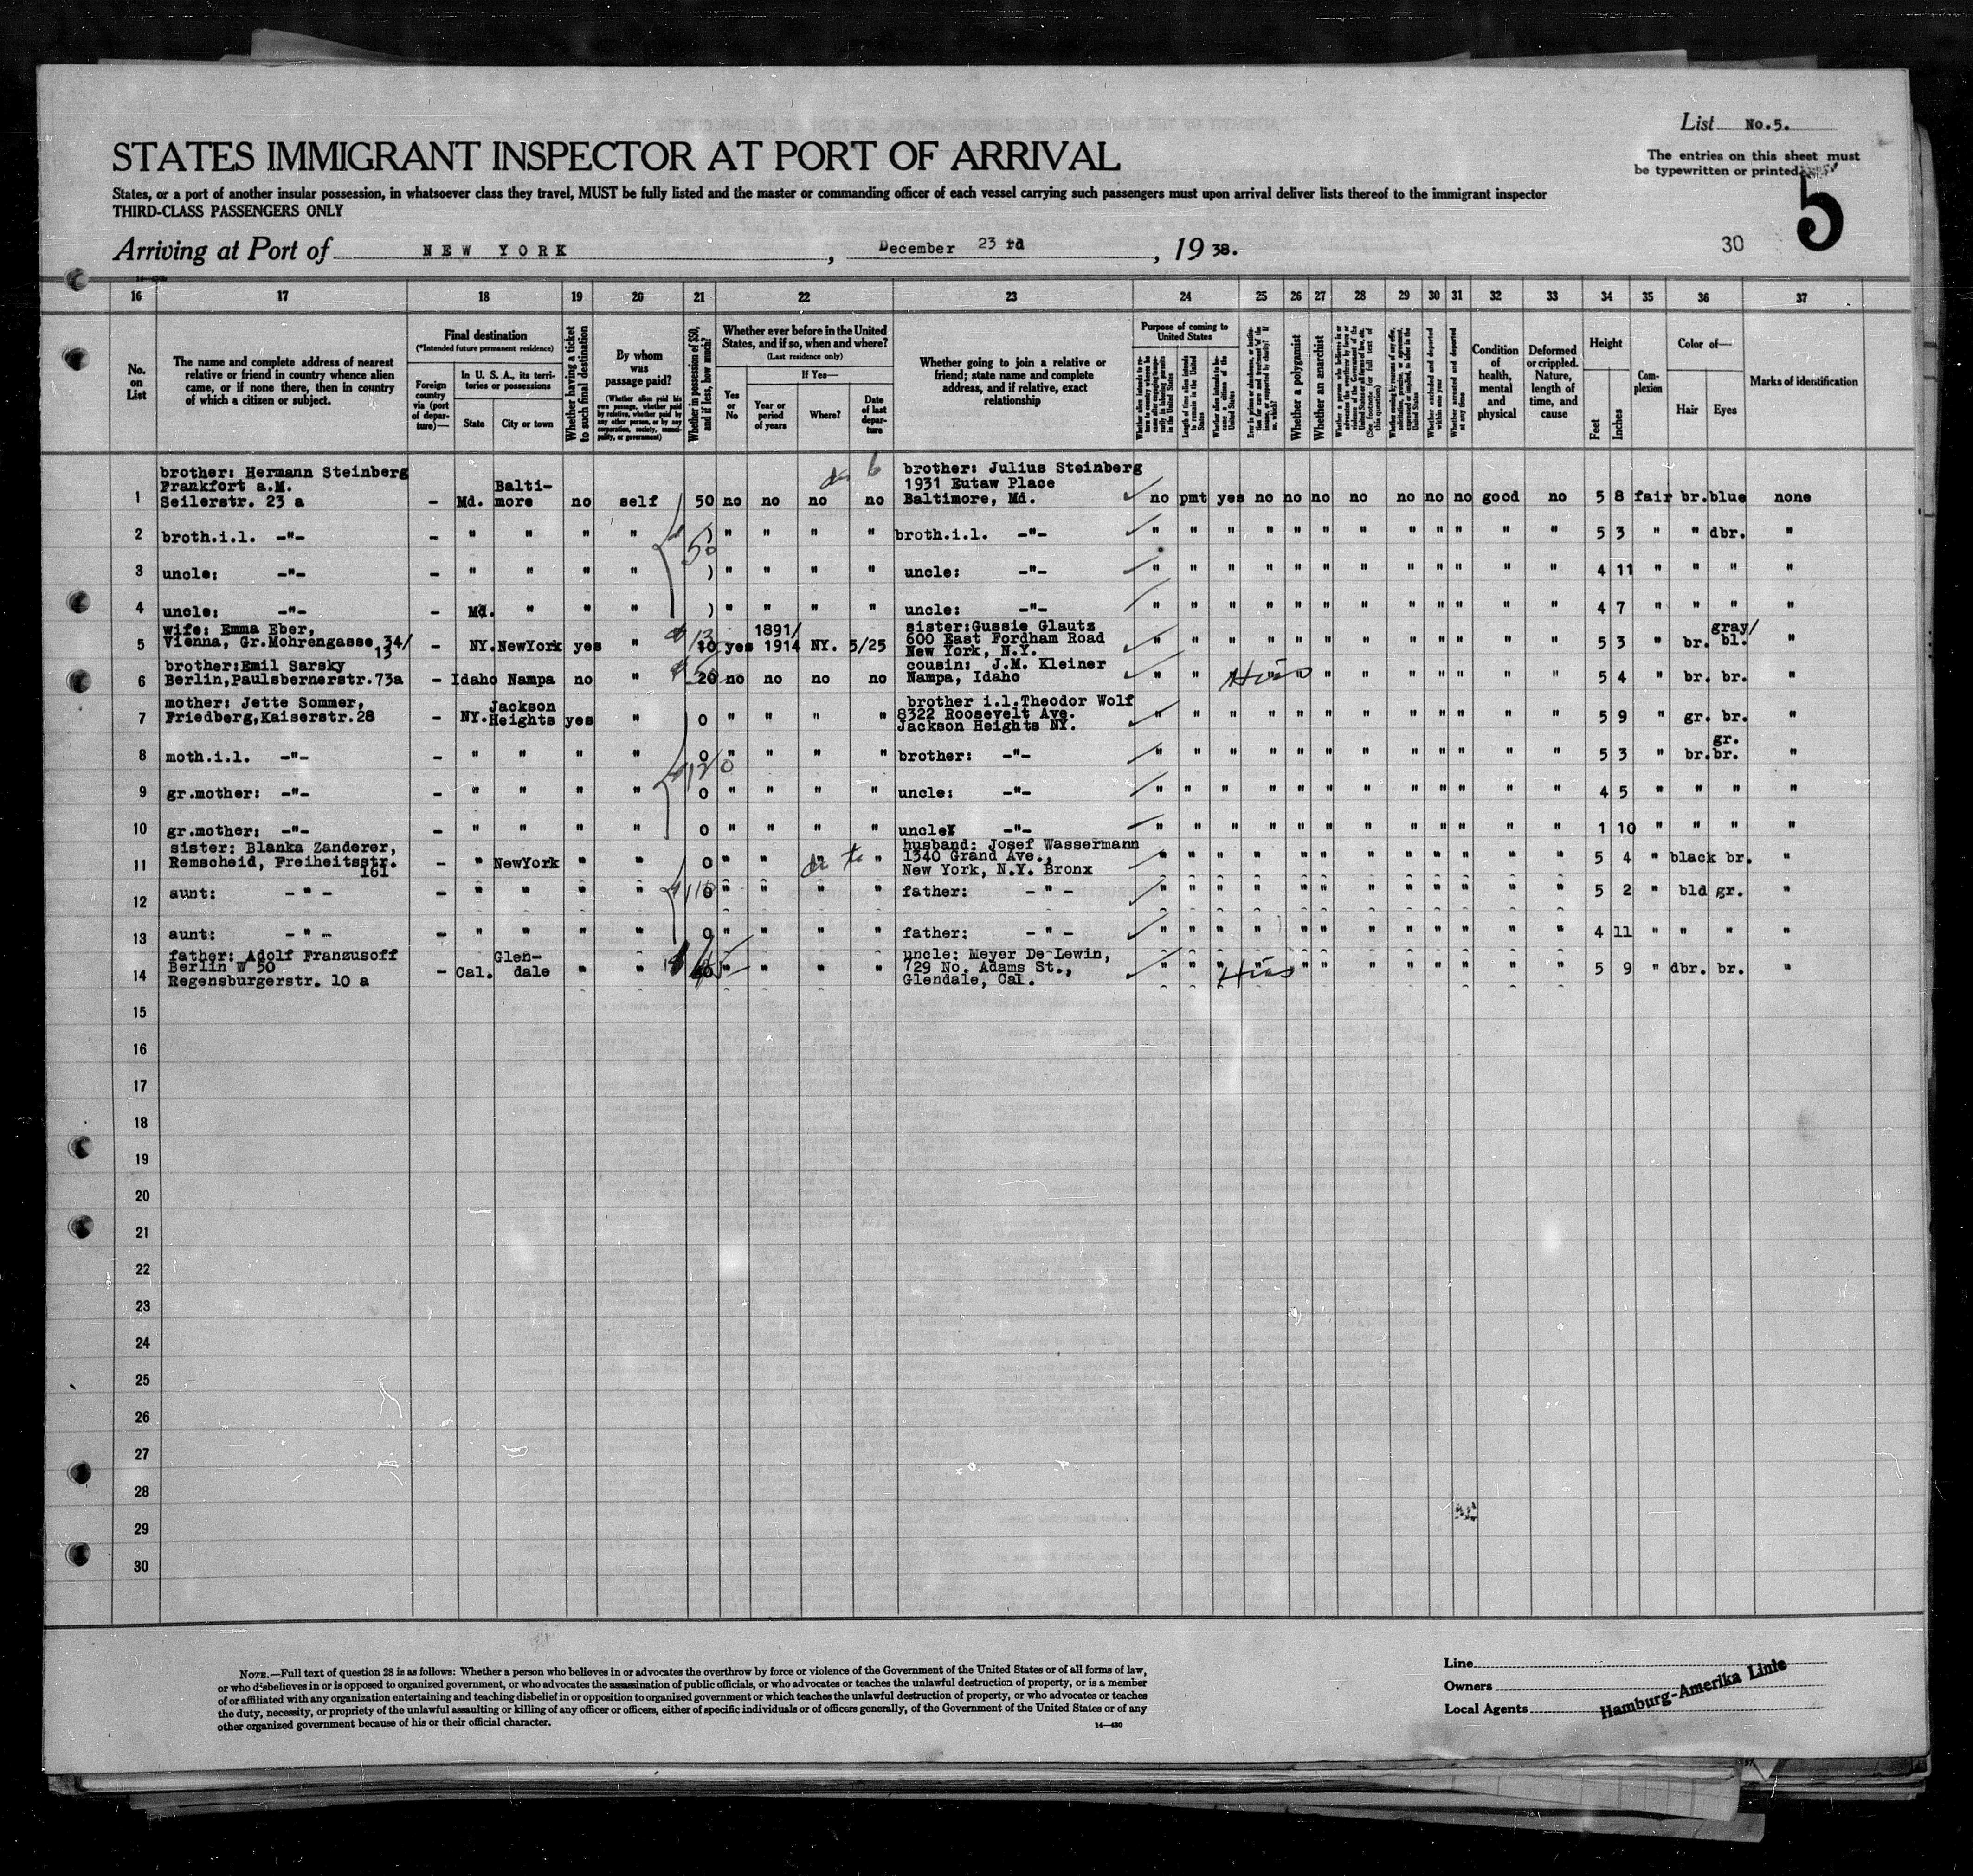 List No.5.
The entries on this sheet must
be typewritten or printed
STATES IMMIGRANT INSPECTOR AT PORT OF ARRIVAL
5
States, or a port of another insular possession, in whatsoever class they travel, MUST be fully listed and the master or commanding officer of each vessel carrying such passengers must upon arrival deliver lists thereof to the immigrant inspector
THIRD-CLASS PASSENGERS ONLY
Arriving at Port of NEW YORK, December 23 rd, 19 38.
30
16 17 18 19 20 21 22 23 24 25 26 27 28 29 30 31 32 33 34 35 36 37
No. on List
The name and complete address of nearest relative or friend in country whence alien came, or if none there, then in country of which a citizen or subject.
Final destination
(*Intended future permanent residence)
Foreign country via (port of departure)—
In U. S. A., its territories or possessions
State
City or town
Whether having a ticket to such final destination
By whom was passage paid?
(Whether alien paid his own passage, whether paid by relative, whether paid by any other person, or by any corporation, society, municipality, or government)
Whether in possession of $50, and if less, how much?
Whether ever before in the United States, and if so, when and where?
(Last residence only)
Yes or No
If Yes—
Year or period of years
Where?
Date of last departure
Whether going to join a relative or friend; state name and complete address, and if relative, exact relationship
Purpose of coming to United States
Length of time alien intends to remain in the United States
Whether alien intends to become a citizen of the United States
Whether a polygamist
Whether an anarchist
Whether arrested and deported at any time
Condition of health, mental and physical
Deformed or crippled. Nature, length of time, and cause
Height
Feet
Inches
Complexion
Color of—
Hair
Eyes
Marks of identification
brother: Hermann Steinberg
Frankfort a.M.
1 Seilerstr. 23 a – Md. Balti-more no self 50 no no no no brother: Julius Steinberg
1931 Eutaw Place
Baltimore, Md. no pmt yes no no no no no no no good no 5 8 fair br. blue none
2 broth.i.l. -"- – " " " " ) " " " " broth.i.l. -"- " " " " " " " " " " " " 5 3 " " dbr. "
50
3 uncle: -"- – " " " " ) " " " " uncle: -"- " " " " " " " " " " " " 4 11 " " " "
4 uncle: -"- – Md. " " " ) " " " " uncle: -"- " " " " " " " " " " " " 4 7 " " " "
wife: Emma Eber,
5 Vienna, Gr.Mohrengasse 34/13 – NY. NewYork yes " 10 yes 1891/1914 NY. 5/25 sister:Gussie Glautz
600 East Fordham Road
New York, N.Y. " " " " " " " " " " " " 5 3 " br. gray/bl. "
brother:Emil Sarsky
6 Berlin,Paulsbernerstr.73a – Idaho Nampa no " 20 no no no no cousin: J.M. Kleiner
Nampa, Idaho " " Hias " " " " " " " " 5 4 " br. br. "
mother: Jette Sommer,
7 Friedberg,Kaiserstr.28 – NY. Jackson Heights yes " 0 " " " " brother i.l.Theodor Wolf
8322 Roosevelt Ave.
Jackson Heights NY. " " " " " " " " " " " " 5 9 " gr. br. "
8 moth.i.l. -"- – " " " " 0 " " " " brother: -"- " " " " " " " " " " " " 5 3 " br. gr. br. "
$120
9 gr.mother: -"- – " " " " 0 " " " " uncle: -"- " " " " " " " " " " " " 4 5 " " " "
10 gr.mother: -"- – " " " " 0 " " " " uncle: -"- " " " " " " " " " " " " 1 10 " " " "
sister: Blanka Zanderer,
11 Remscheid, Freiheitsstr. 161 – " NewYork " " 0 " " " " husband: Josef Wassermann
1340 Grand Ave.,
New York, N.Y. Bronx " " " " " " " " " " " " 5 4 " black br. "
12 aunt: - " - – " " " " 0 " " " " father: - " - " " " " " " " " " " " " 5 2 " bld gr. "
13 aunt: - " - – " " " " 0 " " " " father: - " - " " " " " " " " " " " " 4 11 " " " "
father: Adolf Franzusoff
Berlin W 50
14 Regensburgerstr. 10 a – Cal. Glen-dale " " " " " " uncle: Meyer De Lewin,
729 No. Adams St.,
Glendale, Cal. " " " Hias " " " " " " " " 5 9 " dbr. br. "
15
16
17
18
19
20
21
22
23
24
25
26
27
28
29
30
NOTE.—Full text of question 28 is as follows: Whether a person who believes in or advocates the overthrow by force or violence of the Government of the United States or of all forms of law,
or who disbelieves in or is opposed to organized government, or who advocates the assassination of public officials, or who advocates or teaches the unlawful destruction of property, or is a member
of or affiliated with any organization entertaining and teaching disbelief in or opposition to organized government or which teaches the unlawful destruction of property, or who advocates or teaches
the duty, necessity, or propriety of the unlawful assaulting or killing of any officer or officers, either of specific individuals or of officers generally, of the Government of the United States or of any
other organized government because of his or their official character.
14—430
Line
Owners
Local Agents
Hamburg-Amerika Linie